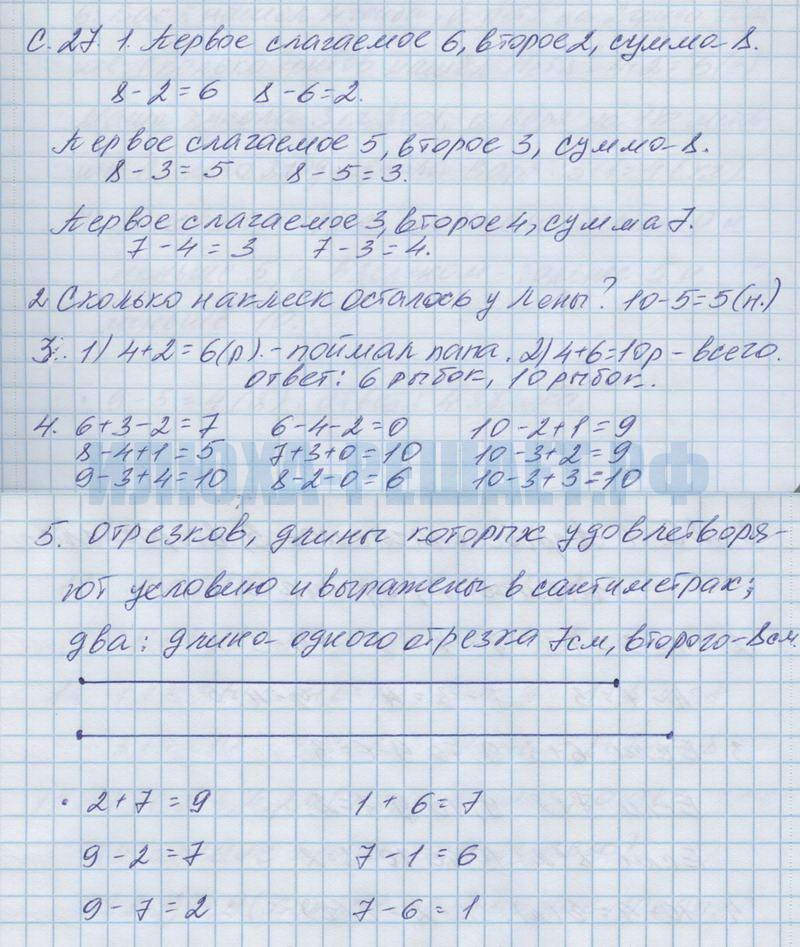 С. 27. 1. Первое слагаемое 6, второе 2, сумма-8.
8-2=6 8-6=2.
Первое слагаемое 5, второе 3, сумма-8.
8-3=5 8-5=3.
Первое слагаемое 3, второе 4, сумма 7.
7-4=3 7-3=4.
2. Сколько наклеек осталось у Лены? 10-5=5(н.)
3. 1) 4+2=6(р).-поймал папа. 2) 4+6=10р-всего.
ответ: 6 рыбок, 10 рыбок.
4. 6+3-2=7 6-4-2=0 10-2+1=9
8-4+1=5 7+3+0=10 10-3+2=9
9-3+4=10 8-2-0=6 10-3+3=10
ИЛОХА-РЕШАЕТ.РФ
5. Отрезков, длины которых удовлетворя-
ют условию и выражены в сантиметрах;
два: длина одного отрезка 7см, второго-8см.
• 2+7=9 1+6=7
9-2=7 7-1=6
9-7=2 7-6=1